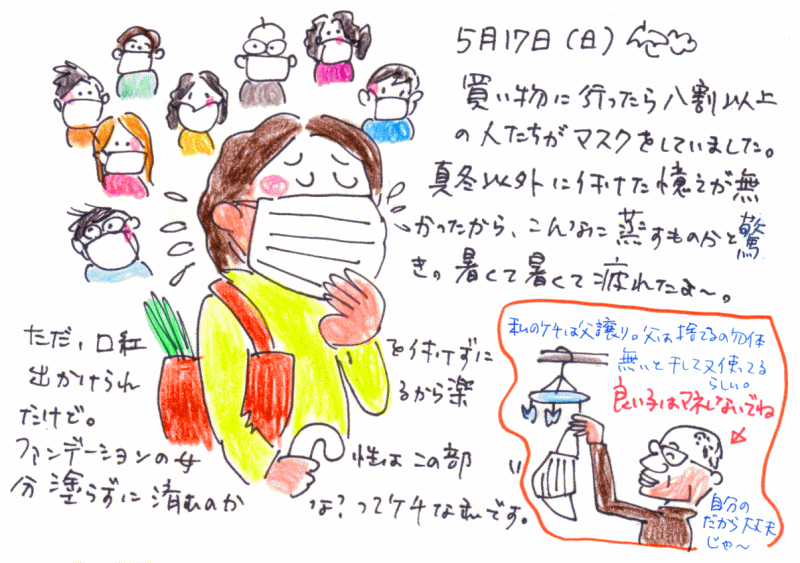 5月17日(日)
買い物に行ったら八割以上
の人たちがマスクをしていました。
真冬以外に付けた憶えが無
かったから、こんなに蒸すものかと驚
き。暑くて暑くて疲れたよ〜。
ただ、口紅を付けずに
出かけられるから楽
だけど。
ファンデーションの女性はこの部
分塗らずに済むのかな?ってケチな私です。
私のケチは父譲り。父は捨てるの勿体
無いと干して又使ってる
らしい。
良い子はマネしないでね
自分の
だから大丈夫
じゃ〜